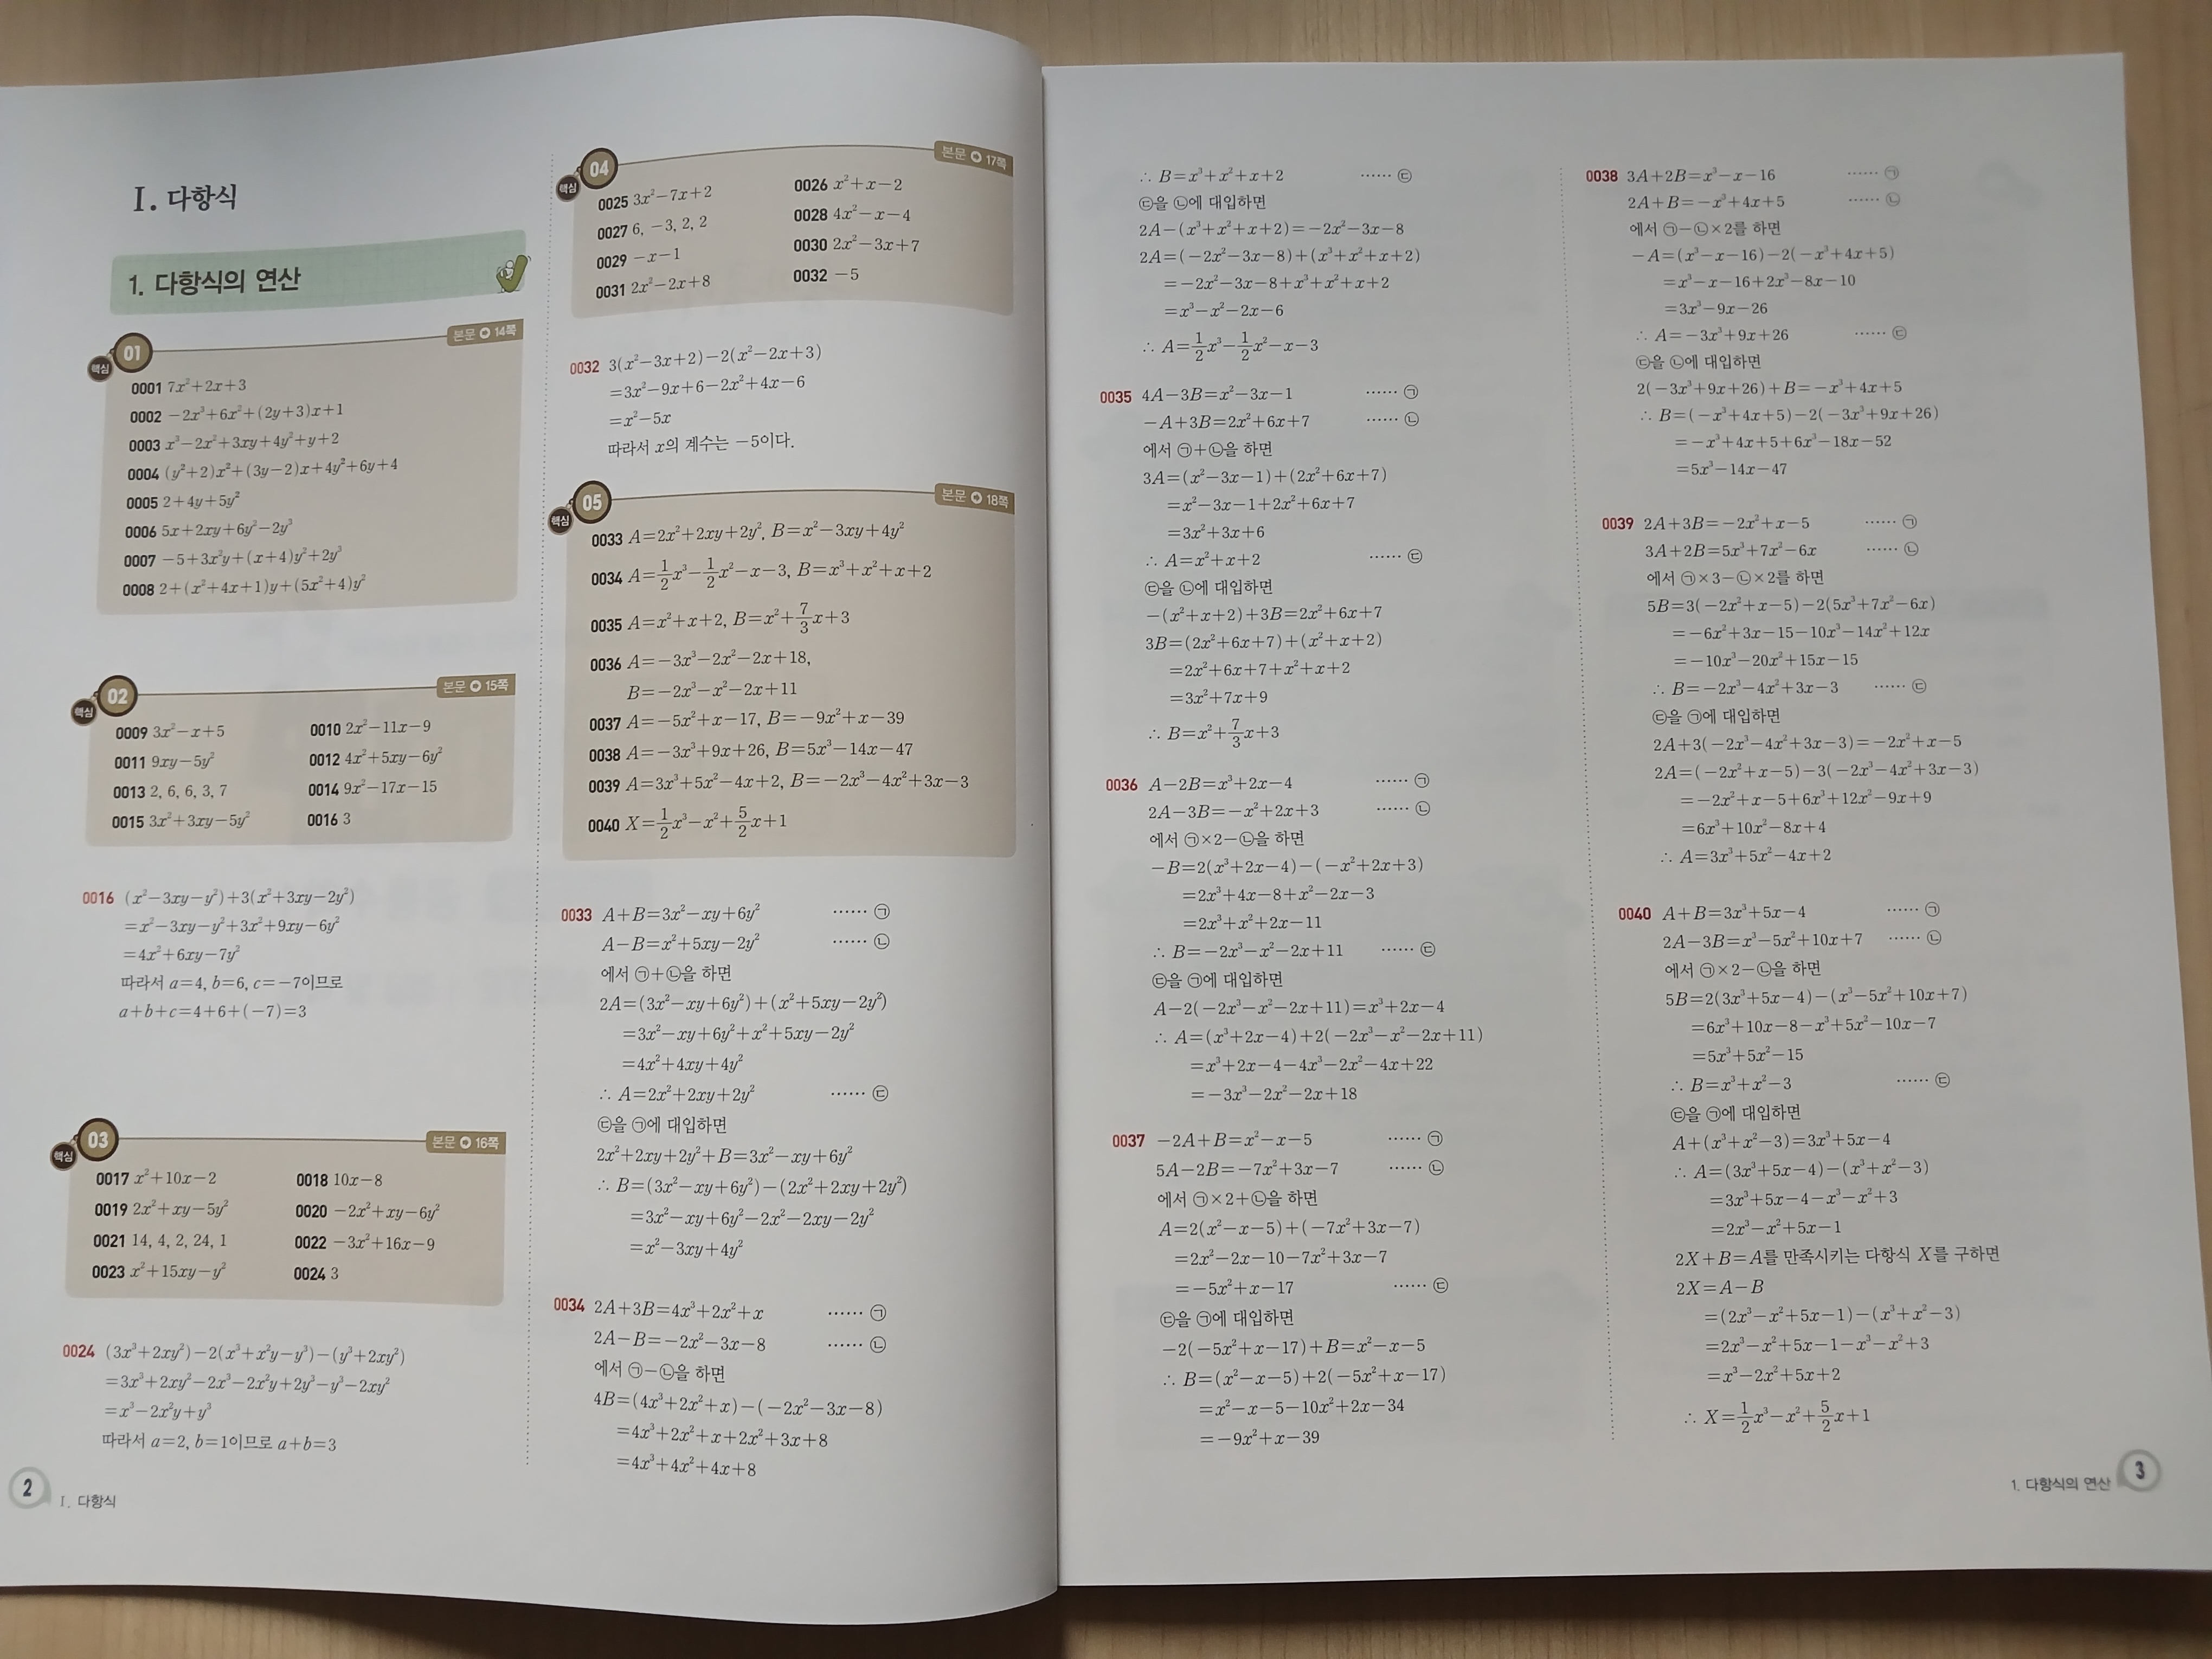 I. 다항식
1. 다항식의 연산
핵심 01 본문 ➲ 14쪽
0001 7x²+2x+3
0002 −2x³+6x²+(2y+3)x+1
0003 x³−2x²+3xy+4y²+y+2
0004 (y²+2)x²+(3y−2)x+4y²+6y+4
0005 2+4y+5y²
0006 5x+2xy+6y²−2y³
0007 −5+3x²y+(x+4)y²+2y³
0008 2+(x²+4x+1)y+(5x²+4)y²
핵심 02 본문 ➲ 15쪽
0009 3x²−x+5 0010 2x²−11x−9
0011 9xy−5y² 0012 4x²+5xy−6y²
0013 2, 6, 6, 3, 7 0014 9x²−17x−15
0015 3x²+3xy−5y² 0016 3
0016 (x²−3xy−y²)+3(x²+3xy−2y²)
=x²−3xy−y²+3x²+9xy−6y²
=4x²+6xy−7y²
따라서 a=4, b=6, c=−7이므로
a+b+c=4+6+(−7)=3
핵심 03 본문 ➲ 16쪽
0017 x²+10x−2 0018 10x−8
0019 2x²+xy−5y² 0020 −2x²+xy−6y²
0021 14, 4, 2, 24, 1 0022 −3x²+16x−9
0023 x²+15xy−y² 0024 3
0024 (3x³+2xy²)−2(x³+x²y−y³)−(y³+2xy²)
=3x³+2xy²−2x³−2x²y+2y³−y³−2xy²
=x³−2x²y+y³
따라서 a=2, b=1이므로 a+b=3
2 I. 다항식
핵심 04 본문 ➲ 17쪽
0025 3x²−7x+2 0026 x²+x−2
0027 6, −3, 2, 2 0028 4x²−x−4
0029 −x−1 0030 2x²−3x+7
0031 2x²−2x+8 0032 −5
0032 3(x²−3x+2)−2(x²−2x+3)
=3x²−9x+6−2x²+4x−6
=x²−5x
따라서 x의 계수는 −5이다.
핵심 05 본문 ➲ 18쪽
0033 A=2x²+2xy+2y², B=x²−3xy+4y²
0034 A=1/2x³−1/2x²−x−3, B=x³+x²+x+2
0035 A=x²+x+2, B=x²+7/3x+3
0036 A=−3x³−2x²−2x+18,
B=−2x³−x²−2x+11
0037 A=−5x²+x−17, B=−9x²+x−39
0038 A=−3x³+9x+26, B=5x³−14x−47
0039 A=3x³+5x²−4x+2, B=−2x³−4x²+3x−3
0040 X=1/2x³−x²+5/2x+1
0033 A+B=3x²−xy+6y² ······ ㉠
A−B=x²+5xy−2y² ······ ㉡
에서 ㉠+㉡을 하면
2A=(3x²−xy+6y²)+(x²+5xy−2y²)
=3x²−xy+6y²+x²+5xy−2y²
=4x²+4xy+4y²
∴ A=2x²+2xy+2y² ······ ㉢
㉢을 ㉠에 대입하면
2x²+2xy+2y²+B=3x²−xy+6y²
∴ B=(3x²−xy+6y²)−(2x²+2xy+2y²)
=3x²−xy+6y²−2x²−2xy−2y²
=x²−3xy+4y²
0034 2A+3B=4x³+2x²+x ······ ㉠
2A−B=−2x²−3x−8 ······ ㉡
에서 ㉠−㉡을 하면
4B=(4x³+2x²+x)−(−2x²−3x−8)
=4x³+2x²+x+2x²+3x+8
=4x³+4x²+4x+8
∴ B=x³+x²+x+2 ······ ㉢
㉢을 ㉡에 대입하면
2A−(x³+x²+x+2)=−2x²−3x−8
2A=(−2x²−3x−8)+(x³+x²+x+2)
=−2x²−3x−8+x³+x²+x+2
=x³−x²−2x−6
∴ A=1/2x³−1/2x²−x−3
0035 4A−3B=x²−3x−1 ······ ㉠
−A+3B=2x²+6x+7 ······ ㉡
에서 ㉠+㉡을 하면
3A=(x²−3x−1)+(2x²+6x+7)
=x²−3x−1+2x²+6x+7
=3x²+3x+6
∴ A=x²+x+2 ······ ㉢
㉢을 ㉡에 대입하면
−(x²+x+2)+3B=2x²+6x+7
3B=(2x²+6x+7)+(x²+x+2)
=2x²+6x+7+x²+x+2
=3x²+7x+9
∴ B=x²+7/3x+3
0036 A−2B=x³+2x−4 ······ ㉠
2A−3B=−x²+2x+3 ······ ㉡
에서 ㉠×2−㉡을 하면
−B=2(x³+2x−4)−(−x²+2x+3)
=2x³+4x−8+x²−2x−3
=2x³+x²+2x−11
∴ B=−2x³−x²−2x+11 ······ ㉢
㉢을 ㉠에 대입하면
A−2(−2x³−x²−2x+11)=x³+2x−4
∴ A=(x³+2x−4)+2(−2x³−x²−2x+11)
=x³+2x−4−4x³−2x²−4x+22
=−3x³−2x²−2x+18
0037 −2A+B=x²−x−5 ······ ㉠
5A−2B=−7x²+3x−7 ······ ㉡
에서 ㉠×2+㉡을 하면
A=2(x²−x−5)+(−7x²+3x−7)
=2x²−2x−10−7x²+3x−7
=−5x²+x−17 ······ ㉢
㉢을 ㉠에 대입하면
−2(−5x²+x−17)+B=x²−x−5
∴ B=(x²−x−5)+2(−5x²+x−17)
=x²−x−5−10x²+2x−34
=−9x²+x−39
0038 3A+2B=x³−x−16 ······ ㉠
2A+B=−x³+4x+5 ······ ㉡
에서 ㉠−㉡×2를 하면
−A=(x³−x−16)−2(−x³+4x+5)
=x³−x−16+2x³−8x−10
=3x³−9x−26
∴ A=−3x³+9x+26 ······ ㉢
㉢을 ㉡에 대입하면
2(−3x³+9x+26)+B=−x³+4x+5
∴ B=(−x³+4x+5)−2(−3x³+9x+26)
=−x³+4x+5+6x³−18x−52
=5x³−14x−47
0039 2A+3B=−2x²+x−5 ······ ㉠
3A+2B=5x³+7x²−6x ······ ㉡
에서 ㉠×3−㉡×2를 하면
5B=3(−2x²+x−5)−2(5x³+7x²−6x)
=−6x²+3x−15−10x³−14x²+12x
=−10x³−20x²+15x−15
∴ B=−2x³−4x²+3x−3 ······ ㉢
㉢을 ㉠에 대입하면
2A+3(−2x³−4x²+3x−3)=−2x²+x−5
2A=(−2x²+x−5)−3(−2x³−4x²+3x−3)
=−2x²+x−5+6x³+12x²−9x+9
=6x³+10x²−8x+4
∴ A=3x³+5x²−4x+2
0040 A+B=3x³+5x−4 ······ ㉠
2A−3B=x³−5x²+10x+7 ······ ㉡
에서 ㉠×2−㉡을 하면
5B=2(3x³+5x−4)−(x³−5x²+10x+7)
=6x³+10x−8−x³+5x²−10x−7
=5x³+5x²−15
∴ B=x³+x²−3 ······ ㉢
㉢을 ㉠에 대입하면
A+(x³+x²−3)=3x³+5x−4
∴ A=(3x³+5x−4)−(x³+x²−3)
=3x³+5x−4−x³−x²+3
=2x³−x²+5x−1
2X+B=A를 만족시키는 다항식 X를 구하면
2X=A−B
=(2x³−x²+5x−1)−(x³+x²−3)
=2x³−x²+5x−1−x³−x²+3
=x³−2x²+5x+2
∴ X=1/2x³−x²+5/2x+1
1. 다항식의 연산 3